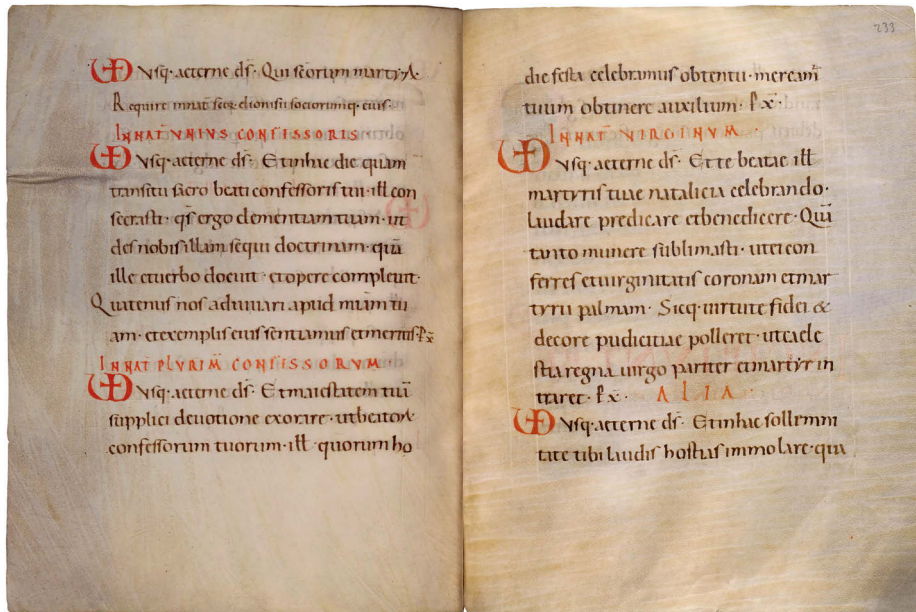 UD Vsq· aeterne ds̄· Qui sc̄orum martyꝝ·
Require in nat̄ sc̄ę dionisii sociorumq· eius·
IN NAT̄ VNIUS CONFESSORIS
UD Vsq· aeterne ds̄· Et in hac die quam
transitu sacro beati confessoris tui· ill̄ con
secrasti· qs̄ ergo clementiam tuam· ut
des nobis illam sequi doctrinam· quā
ille et uerbo docuit· et opere compleuit·
Quatenus nos adiuuari apud mīam tu
am· et exemplis eius sentiamus et meritis· Px̄
IN NAT̄ PLVRIM̄ CONFESSORVM·
UD Vsq· aeterne ds̄· Et maiestatem tuā
supplici deuotione exorare· ut beatoꝝ
confessorum tuorum· ill̄· quorum ho
233
die festa celebramus obtentu· meream̄
tuum obtinere auxilium· Px̄·
IN NAT̄ VIRGINVM·
UD Vsq· aeterne ds̄· Et te beatae ill̄
martyris tuae natalicia celebrando·
laudare predicare et benedicere· Quā
tanto munere sublimasti· ut ei con
ferres et uirginitatis coronam et mar
tyrii palmam· Sicq· uirtute fidei &
decore pudicitiae polleret· ut caele
stia regna uirgo pariter et martyr in
traret· Px̄· ALIA·
UD Vsq· aeterne ds̄· Et in hac sollemni
tate tibi laudis hostias immolare· qua